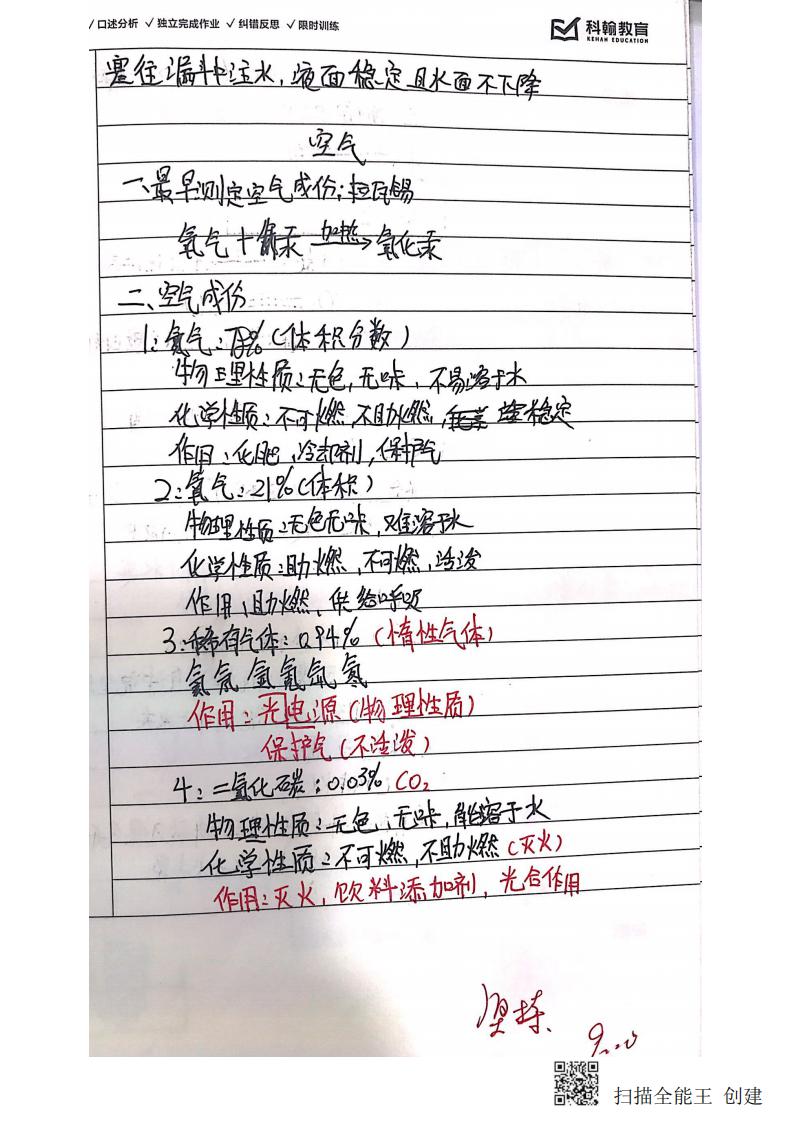 √口述分析 √独立完成作业 √纠错反思 √限时训练
科翰教育
KEHAN EDUCATION
塞住漏斗中注水，液面稳定且水面不下降
空气
一、最早测定空气成份：拉瓦锡
氧气+汞 加热→ 氧化汞
二、空气成份
1：氮气：78%（体积分数）
物理性质：无色，无味，不易溶于水
化学性质：不可燃，不助燃，稳定
作用：化肥、冷却剂，保护气
2：氧气：21%（体积）
物理性质：无色无味，难溶于水
化学性质：助燃，不可燃，活泼
作用：助燃、供给呼吸
3：稀有气体：0.94%（惰性气体）
氦氖氩氪氙氡
作用：光电源（物理性质）
保护气（不活泼）
4：二氧化碳：0.03% CO₂
物理性质：无色、无味，能溶于水
化学性质：不可燃，不助燃（灭火）
作用：灭火，饮料添加剂，光合作用
扫描全能王 创建